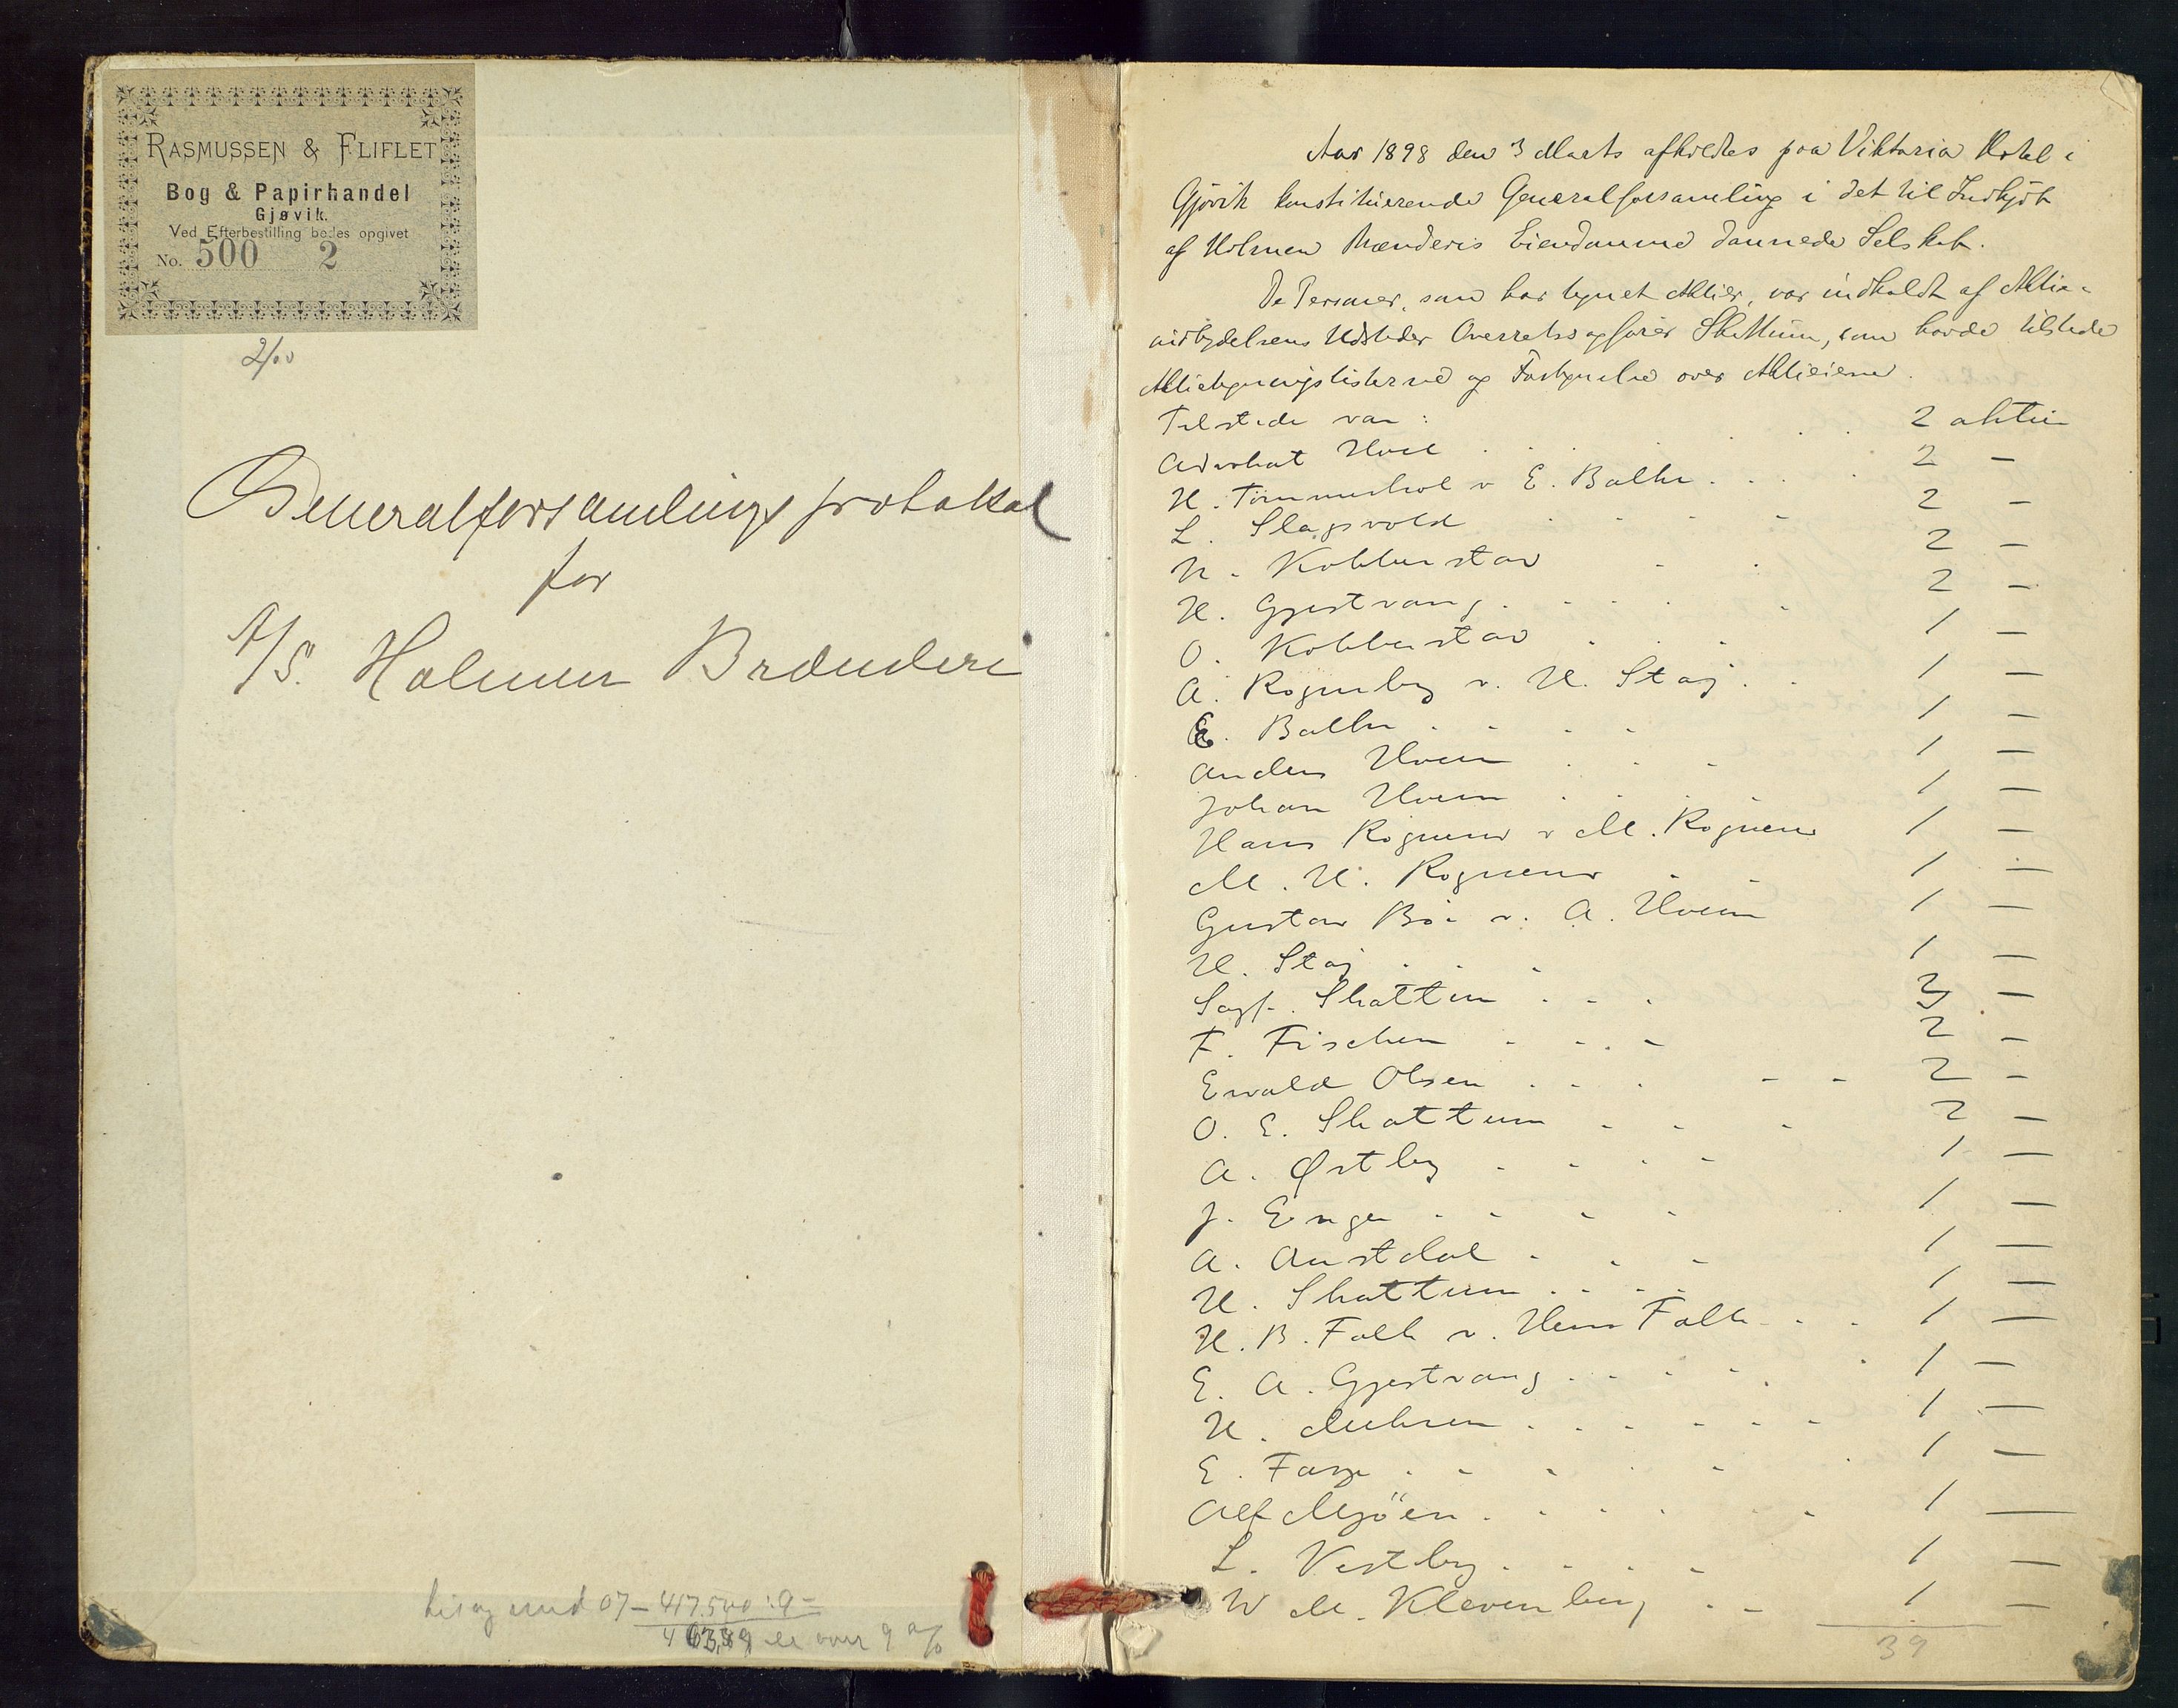 RASMUSSEN & FLIFLET
Bog & Papirhandel
Gjøvik.
Ved Efterbestilling bedes opgivet
No. 500 2
2/00
Generalforsamlingsprotokol
for
A/S. Holmen Brænderi
417.500 : 9 =
over 9 %
Aar 1898 den 3 Marts afholdtes paa Viktoria Hotel i
Gjøvik konstituerende Generalforsamling i det til Indkjøb
af Holmen Brænderis Eiendomme dannede Selskab.
De Personer, som har tegnet Aktier, var indkaldt af Aktie-
indbydelsens Udsteder Overretssagfører Skattum, som havde tilstede
Aktietegningslisterne og Fortegnelse over Aktieierne.
Tilstede var:
Advokat Hoel . . . . 2 aktier
H. Tømmerhol v E. Balke . . . 2 —
L. Slagsvold . . . 2 —
N. Kobberstad . . 2 —
H. Gjestvang . . . . 2 —
O. Kobberstad . . . 1 —
A. Rogneby v. H. Staj . . 1 —
E. Balke . . . . 1 —
Anders Hveem . . . 1 —
Johan Hveem . . . 1 —
Hans Rognerud v M. Rognerud 1 —
M. H. Rognerud . . 1 —
Gustav Bøe v. A. Hveem 1 —
H. Staj . . . 1 —
Sagf. Skattum . . . 2 —
F. Fischer . . . 2 —
Ewald Olsen . . . . . 2 —
O. E. Skattum . . . 2 —
A. Østby . . . . 1 —
J. Enger . . . . 1 —
A. Austdal . . . 1 —
H. Skattum . . . . 1 —
H. B. Falk v. Herm Falk . . 1 —
E. A. Gjestvang . . . . . 1 —
H. . . . . . . 1 —
E. . . . . . 1 —
Alf Mjøen . . . . . 1 —
L. Vestby . . . . 1 —
W M. Klevenberg . . 1 —
39